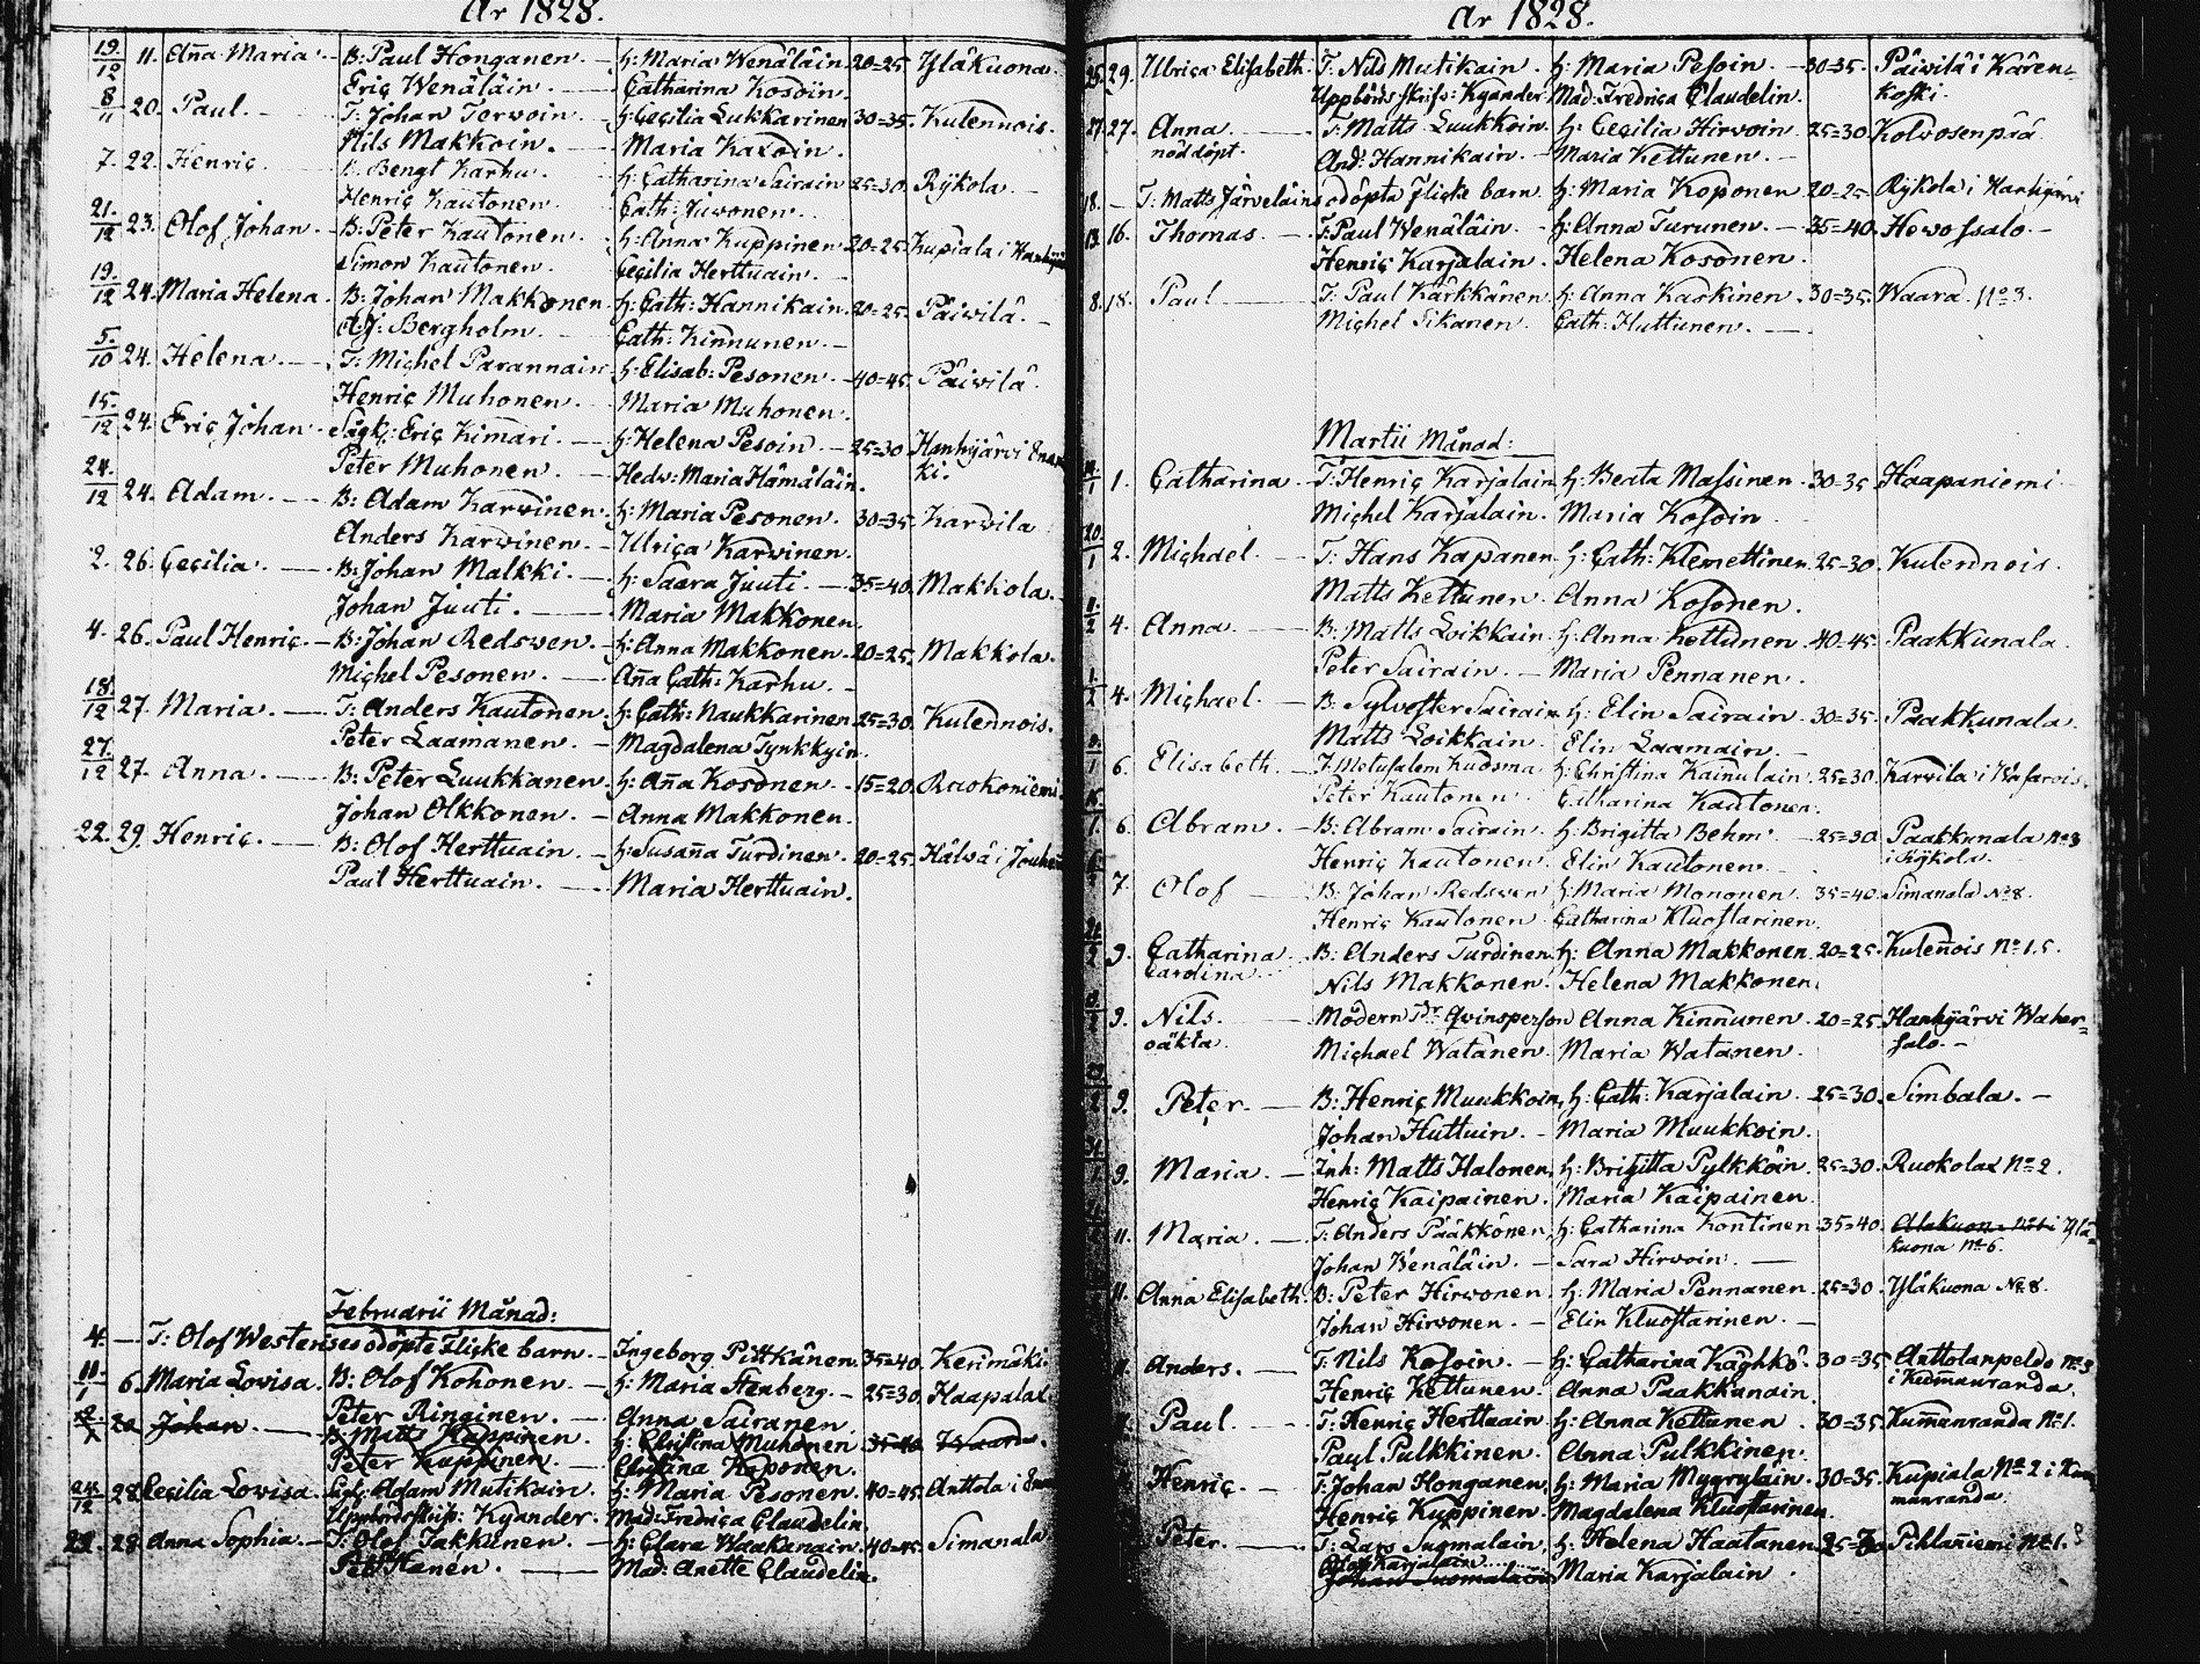 År 1828.
19/12 11. Aña Maria. B: Paul Honganen. h: Maria Wenäläin. 20=25. Yläkuona.
Eric Wenäläin. Catharina Kosoin.
8/11 20. Paul. T: Johan Terwoin. h: Cecilia Lukkarinen 30=35. Kulennois.
Nils Makkoin. Maria Kaxoin.
7. 22. Henric. B. Bengt Karhu. h: Catharina Sairain 25=30. Rÿkola.
Henric Kautonen. Cath: Juvonen.
21/12 23. Olof Johan. B: Peter Kautonen. h: Anna Kuppinen 20=25. Kupiala i
Simon Kautonen. Cecilia Herttuain.
19/12 24. Maria Helena. B: Johan Makkonen. h: Cath: Hannikain. 20=25. Päivilä.
A: J: Bergholm. Cath: Kinnunen.
5/10 24. Helena. T: Michel Parannain h: Elisab: Pesonen. 40=45. Päivilä.
Henric Muhonen. Maria Muhonen.
15/12 24. Eric Johan. Sågk: Eric Kimari. h: Helena Pesoin. 25=30 Hanhijärvi
Peter Muhonen. Hedw: Maria Hämäläin. ki.
24/12 24. Adam. B: Adam Karvinen. h: Maria Pesonen. 30=35. Karvila
Anders Karvinen. Ulrica Karvinen.
2. 26. Cecilia. B: Johan Malkki. h: Saara Juuti. 35=40. Makkola.
Johan Juuti. Maria Makkonen.
4. 26. Paul Henric. B: Johan Redsven. h: Anna Makkonen. 20=25. Makkola.
Michel Pesonen. Aña Cath: Karhu.
18/12 27. Maria. T: Anders Kautonen. h: Cath: Naukkarinen 25=30. Kulennois.
Peter Laamanen. Magdalena Tynkkyin.
27/12 27. Anna. B: Peter Luukkanen. h: Aña Kosonen. 15=20. Raokoniemi.
Johan Olkkonen. Anna Makkonen.
22. 29. Henric. B: Olof Herttuain. h: Susaña Turdinen. 20=25. Hälvä i
Paul Herttuain. Maria Herttuain.
Februarii Månad:
4. T: Olof Westerises odöpte Flicke barn. Ingeborg Pittkänen. 35=40. Kerimäki.
11/1 6. Maria Lovisa. B: Olof Kohonen. h: Maria Stenberg. 25=30. Haapalax
Peter Ringinen. Anna Sairanen
20 Johan. B: Matts Kuppinen. h: Christina Muhonen 35=40. Waara.
Peter Kuppinen. Christina Koponen.
24/12 28. Cecilia Lovisa. Adam Mutikain. h: Maria Pesonen. 40=45. Anttola i
Uppbördsskrifv: Kyander. Mad: Fredrica Claudelin
28. Anna Sophia. T: Olof Takkunen. h: Clara Waakanain. 40=45. Simanala
Mad: Anette Claudelin.
År 1828.
25. 29. Ulrica Elisabeth. T. Nils Mutikain. h: Maria Pesoin. 30=35. Päivilä i Kären=
Uppbörds skrifv: Kyander Mad: Fredrica Claudelin. koski.
27. 27. Anna. T: Matts Luukkoin. h: Cecilia Hirvoin. 25=30. Kolvosenpää
nöd döpt. And: Hannikain. Maria Kettunen.
18. T: Matts Järveläins odöpta Flicke barn. h: Maria Koponen. 20=25. Rÿkola i Hanhijärvi
13. 16. Thomas. T: Paul Wenäläin. h: Anna Turunen. 35=40. Hevossalo.
Henric Karjalain. Helena Kosonen.
8. 18. Paul T: Paul Kärkkänen h: Anna Kaskinen. 30=35. Waara. No 3.
Michel Sikanen. Cath: Huttunen.
Martii Månad:
1. Catharina. T: Henric Karjalain h: Beata Massinen. 30=35. Haapaniemi
Michel Karjalain. Maria Kosoin
20/1 2. Michael. T: Hans Kapanen. h: Cath: Klemettinen. 25=30. Kulennois.
Matts Kettunen. Anna Kosonen.
4. Anna. B: Matts Loikkain. h: Anna Kettunen. 40=45. Paakkunala.
Peter Sairain. Maria Pennanen.
4. Michael. B: Sylvester Sairain. h: Elin Sairain. 30=35. Paakkunala.
Matts Loikkain. Elin Laamain.
6. Elisabeth. T: Metusalem Kuosma h: Christina Kainulain. 25=30. Karvila i
Peter Kautonen. Catharina Kautonen.
6. Abram. B: Abram Sairain. h: Brigitta Behm. 25=30. Paakkunala No 3
Henric Kautonen. Elin Kautonen. i Rÿkola.
7. Olof B: Johan Redsven h: Maria Mononen. 35=40. Simanala No 8.
Henric Kautonen. Catharina Kluostarinen.
9. Catharina B: Anders Turdinen. h: Anna Makkonen. 20=25. Kuleñois No 15.
Carolina. Nils Makkonen. Helena Makkonen.
9. Nils. Modern Qvinsperson Anna Kinnunen. 20=25. Hanhijärvi Waher=
oäkta. Michael Watanen. Maria Watanen. salo.
9. Peter. B: Henric Muukkoin, h: Cath: Karjalain. 25=30. Simbala.
Johan Huttuin. Maria Muukkoin.
9. Maria. Inh: Matts Halonen, h: Brigitta Pylkkön. 25=30. Ruokolax No 2.
Henric Kaipainen. Maria Kaipainen
11. Maria. T: Anders Pääkkönen, h: Catharina Kontinen 35=40. Alakuona i Ylä=
Johan Wenäläin. Sara Hirvoin. kuona No 6.
11. Anna Elisabeth. B: Peter Hirvonen. h: Maria Pennanen. 25=30. Yläkuona No 8.
Johan Hirvonen. Elin Kluostarinen.
Anders. T: Nils Kosoin. h: Catharina Käghkö. 30=35. Anttolanpeldo
Henric Kettunen. Anna Paakkunain. i Kum̃anranda.
Paul. T: Henric Herttuain h: Anna Kettunen. 30=35. Kum̃anranda No 1.
Paul Pulkkinen. Anna Pulkkinen.
Henric. T: Johan Honganen, h: Maria Mygrylain. 30=35. Kupiala No 2 i
Henric Kuppinen. Magdalena Kluostarinen. manranda.
Peter. T: Lars Suomalain, h: Helena Haatanen. Pihlañiemi No 1.
Olof Karjalain
Johan Suomalain Maria Karjalain.